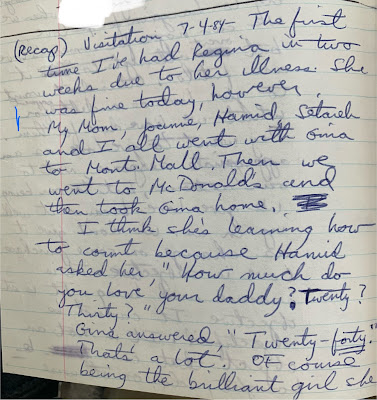 (Recap) Visitation 7-4-84 - The first
time I've had Regina in two
weeks due to her illness. She
was fine today, however,
My Mom, Joanne, Hamid, Setareh
and I all went with Gina
to Mont. Mall. Then we
went to McDonald's and
then took Gina home.
I think she's learning how
to count because Hamid
asked her, "How much do
you love your daddy? Twenty?
Thirty?"
Gina answered, "Twenty-forty."
Thats a lot. Of course
being the brilliant girl she